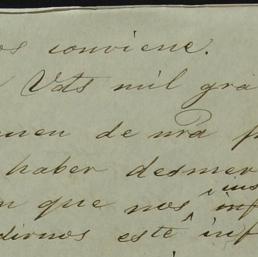 os conviene.
Vds mil gra
uen de nra p
haber desmer
n que nos inf
dirnos este inf